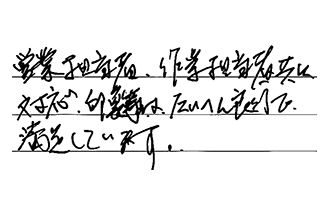 営業担当者、作業担当者共に
対応、印象は、たいへん良いので、
満足しています。